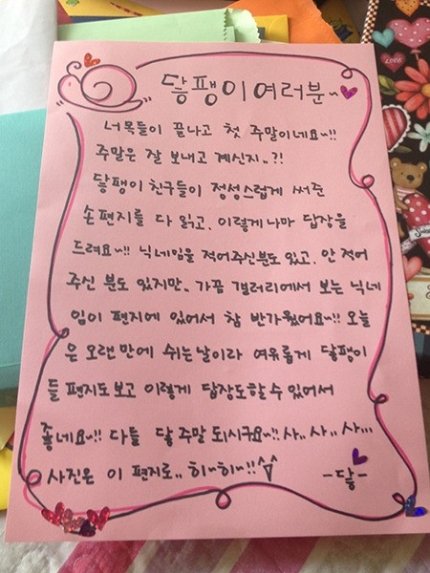 달팽이여러분~
너목들이 끝나고 첫 주말이네요~!!
주말은 잘 보내고 계신지..?!
달팽이 친구들이 정성스럽게 써준
손편지를 다 읽고, 이렇게나마 답장을
드려요~!! 닉네임을 적어주신분도 있고, 안 적어
주신 분도 있지만.. 가끔 갤러리에서 보는 닉네
임이 편지에 있어서 참 반가웠어요~!! 오늘
은 오랜만에 쉬는날이라 여유롭게 달팽이
들 편지도보고 이렇게 답장도할 수 있어서
좋네요~!! 다들 달 주말 되시구요~!! 사.. 사.. 사...
사진은 이 편지로.. 히~히~!! ^^
-달-